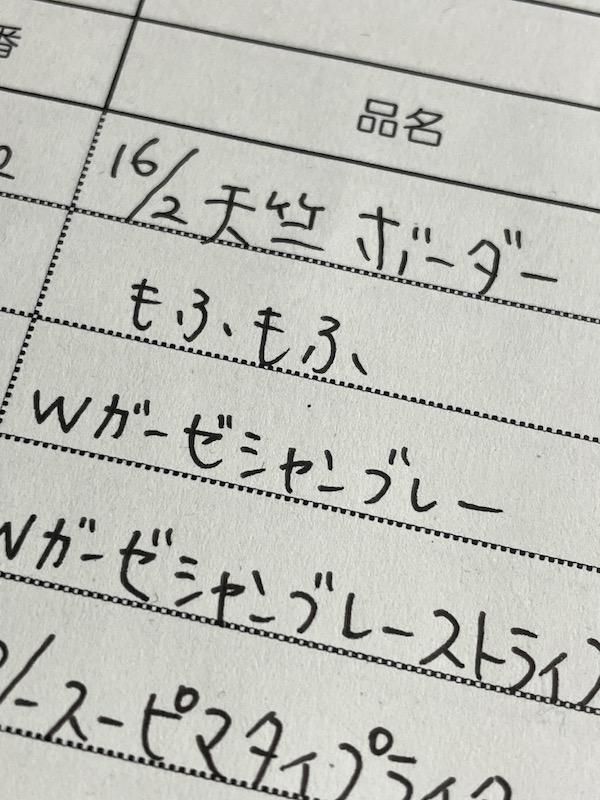 番 品名
2 16/2 天竺 ボーダー
もふもふ
Wガーゼシャンブレー
Wガーゼシャンブレーストライプ
/-スーピマタイプライタ